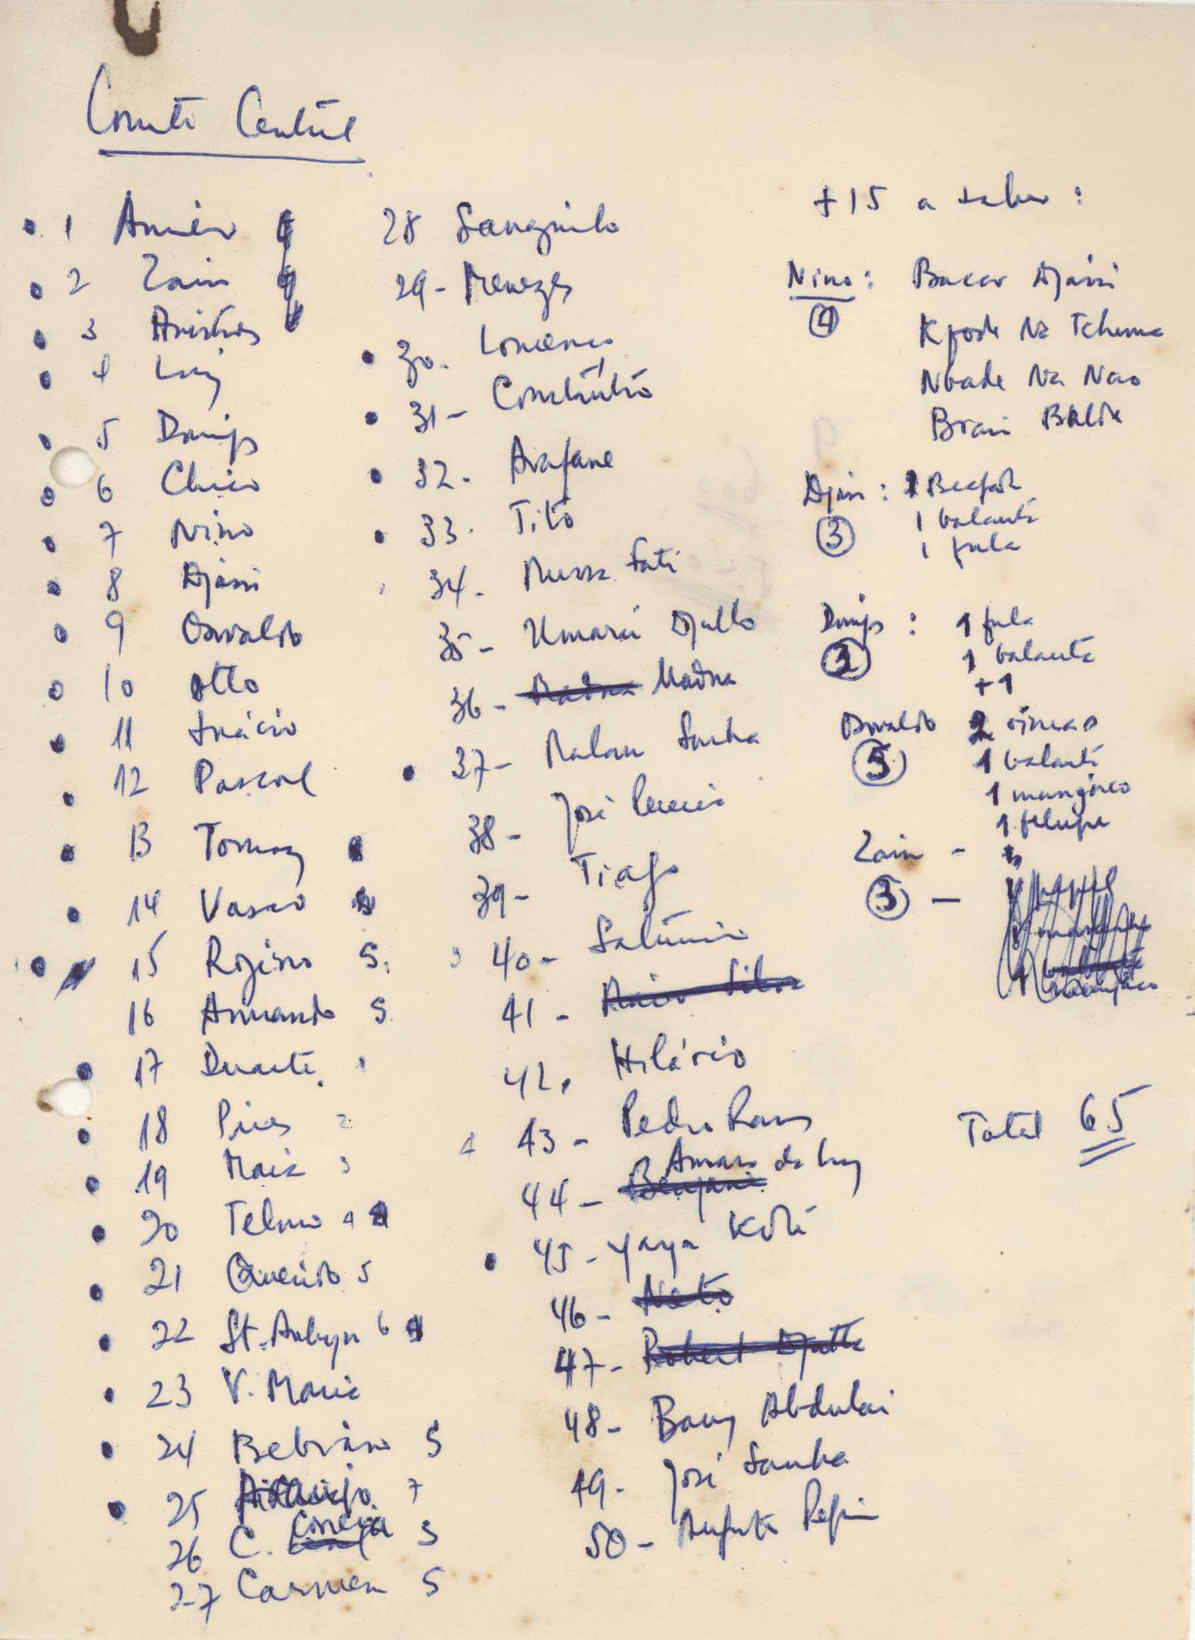 Comité Central
1 Amílcar
2 Zain
3 Aristides
4 Luiz
5 Domingos
6 Chico
7 Nino
8 Djassi
9 Osvaldo
10 Otto
11 Inácio
12 Pascoal
13 Tomaz
14 Vasco
15 Rogério S.
16 Armando S.
17 Duarte
18 Pires
19 Maia 3
20 Telmo 4
21 Quecuto S
22 St. Aubyn 6
23 V. Maria
24 Bebiano S
25 Araújo 7
26 C. Correia S
27 Carmen S
28
29- Menezes
30. Lourenço
31- Constantino
32. Arafane
33. Tito
34- Mussa Fati
35- Umarú Djallo
36- Madna
37- Malam Sanha
38- José
39- Tiago
40- Saturnino
41-
42. Hilário
43- Pedro Ramos
44- Amaro da Luz
45- Yaya Koté
46- Neto
47- Robert Djatta
48- Bary Abdulai
49- José Sanha
50-
+15 a saber:
Nino: Bacar Djassi
④ Kpode Na Tchuma
Nbade Na Nao
Brai Balde
Djassi: 1 Beafada
③ 1 balanta
1 fula
Domingos: 1 fula
③ 1 balanta
+1
Osvaldo 2
⑤ 1 balanta
1 manjaco
1 felupe
Zain -
③ -
Total 65